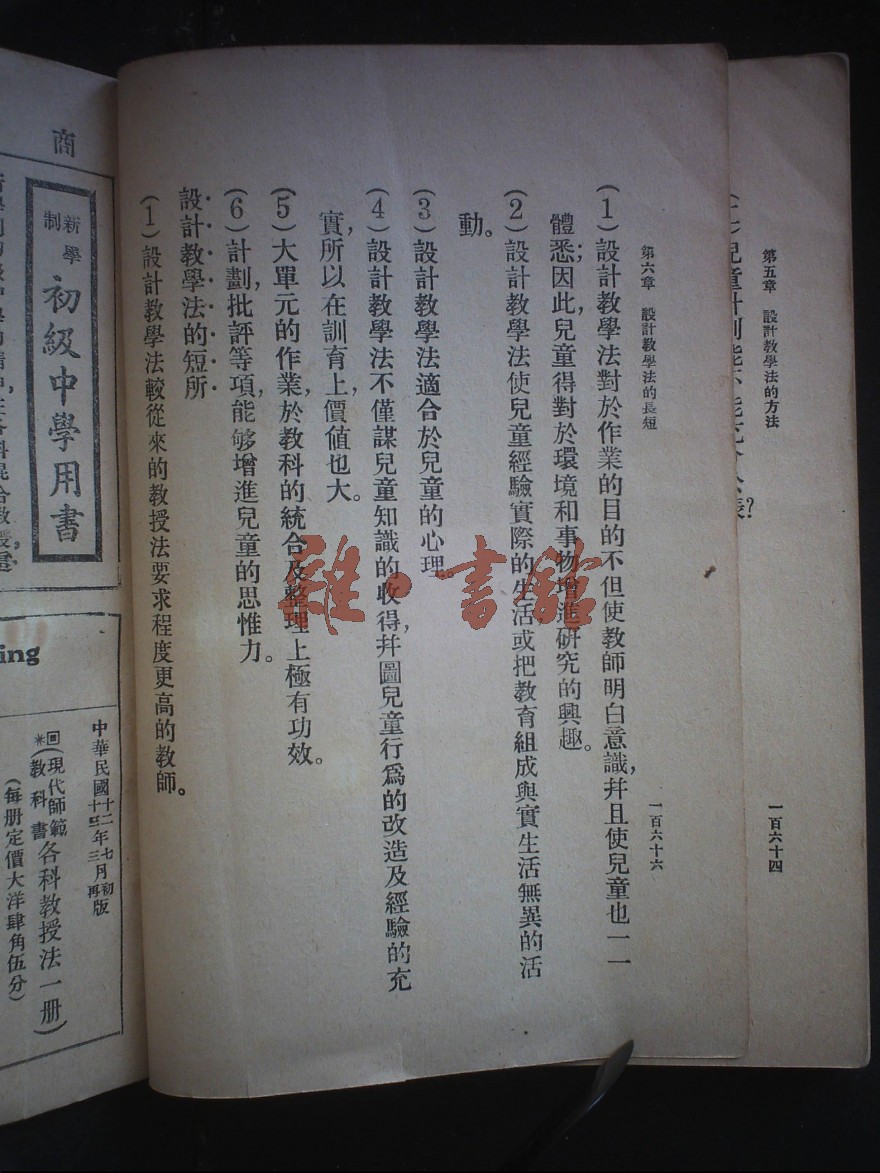 第五章　設計教學法的方法
一百六十四
第六章　設計教學法的長短
一百六十六
(1)設計教學法對於作業的目的不但使教師明白意識，幷且使兒童也一一
體悉；因此，兒童得對於環境和事物增進研究的興趣。
(2)設計教學法使兒童經驗實際的生活或把教育組成與實生活無異的活
動。
(3)設計教學法適合於兒童的心理。
(4)設計教學法不僅謀兒童知識的收得，幷圖兒童行爲的改造及經驗的充
實，所以在訓育上，價値也大。
(5)大單元的作業，於教科的統合及整理上極有功效。
(6)計劃，批評等項，能够增進兒童的思惟力。
設計教學法的短所
(1)設計教學法較從來的教授法要求程度更高的教師。
雜·書館
商
新學制
初級中學用書
ing
中華民國十二年七月初版
三月再版
(現代師範教科書)各科教授法一册
(每册定價大洋肆角伍分)